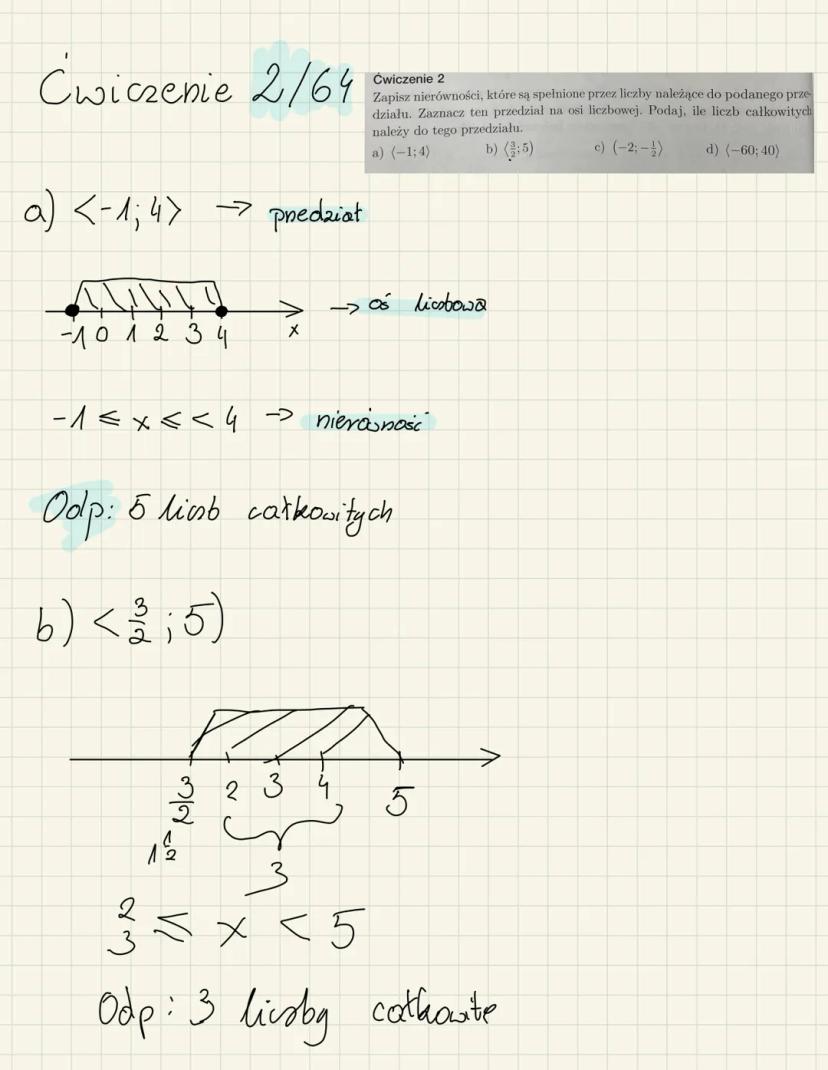 Ćwiczenie 2/64
Ćwiczenie 2
Zapisz nierówności, które są spełnione przez liczby należące do podanego prze-
działu. Zaznacz ten przedział na osi liczbowej. Podaj, ile liczb całkowitych
należy do tego przedziału.
a) ⟨−1; 4⟩ b) ⟨3/2; 5) c) (−2; −1/2⟩ d) ⟨−60; 40⟩
a) <-1; 4> → przedział
-1 0 1 2 3 4 x → oś liczbowa
-1 ≤ x ≤ < 4 → nierówność
Odp: 5 liczb całkowitych
b) <3/2 ; 5)
3/2 2 3 4 5
1 1/2
3
2/3 ≤ x < 5
Odp: 3 liczby całkowite